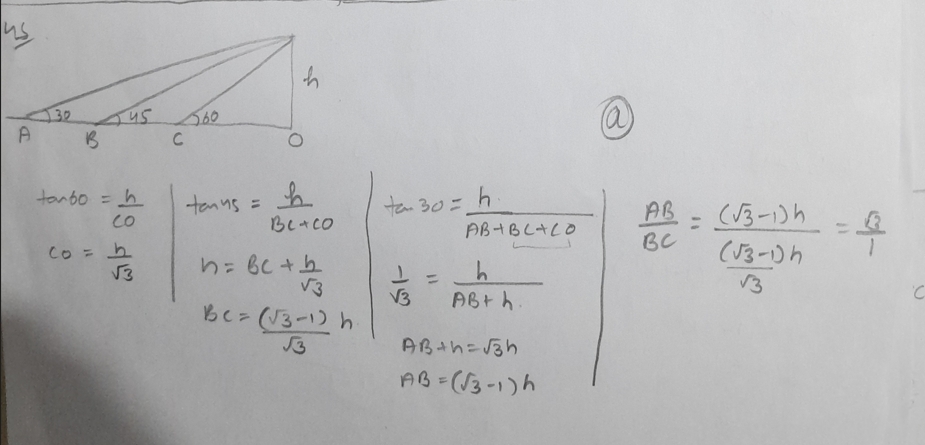 45
h
30 45 60
A B C O
a
tan60 = h/CO
CO = h/√3
tan45 = h/BC+CO
h = BC + h/√3
BC = (√3-1) h/√3
tan 30 = h/AB+BC+CO
1/√3 = h/AB+h.
AB+h = √3h
AB = (√3-1)h
AB/BC = (√3-1)h/(√3-1)h/√3 = √3/1